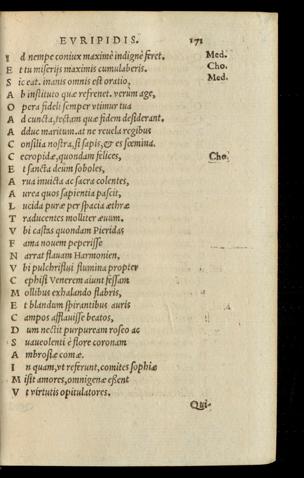 EVRIPIDIS. 171
I d nempe coniux maximè indignè feret. Med.
E t tu miserijs maximis cumulaberis. Cho.
S ic eat. inanis omnis est oratio, Med.
A b instituto quæ refrenet. verum age,
O pera fideli semper vtimur tua
A d cuncta, tectam quæ fidem desiderant.
A dduc maritum. at ne reuela regibus
C onsilia nostra, si sapis, & es fœmina.
C ecropidæ, quondam felices, Cho.
E t sancta deûm soboles,
A rua inuicta ac sacra colentes,
A urea quos sapientia pascit,
L ucida puræ per spacia æthræ
T raducentes molliter æuum.
V bi castas quondam Pieridas
F ama nouem peperisse
N arrat flauam Harmonien,
V bi pulchriflui flumina propter
C ephisi Venerem aiunt fessam
M ollibus exhalando flabris,
E t blandum spirantibus auris
C ampos afflauisse beatos,
D um nectit purpuream roseo ac
S uaueolenti è flore coronam
A mbrosiæ comæ.
I n quam, vt referunt, comites sophiæ
M isit amores, omnigenæ essent
V t virtutis opitulatores.
Qui-